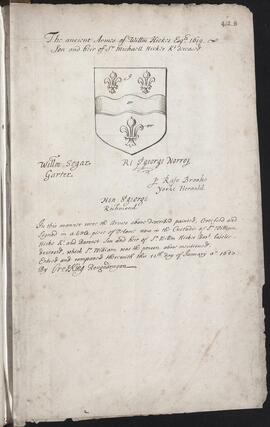 412 B
The ancient Armes of Willm Hickes Esqr. 1619
Son and heir of Sr. Michaell Hickes Kt. deceased
or
or
Willm. Segar
Garter.
Ri: St george Norroy
p Rafe Brooke
Yorke Herauld.
Hen: St george
Richmond
In this manner were the Armes above described painted, Certified and
Signed in a little piece of now in the Custodie of Sr. William
Hickes Kt. and Baronet Son and heir of Sr. Willm Hickes Bart. lately
deceased, which Sr. William was the person above mentioned.
Entred and compared therewith this day of January
By Gre: King Rougedragon